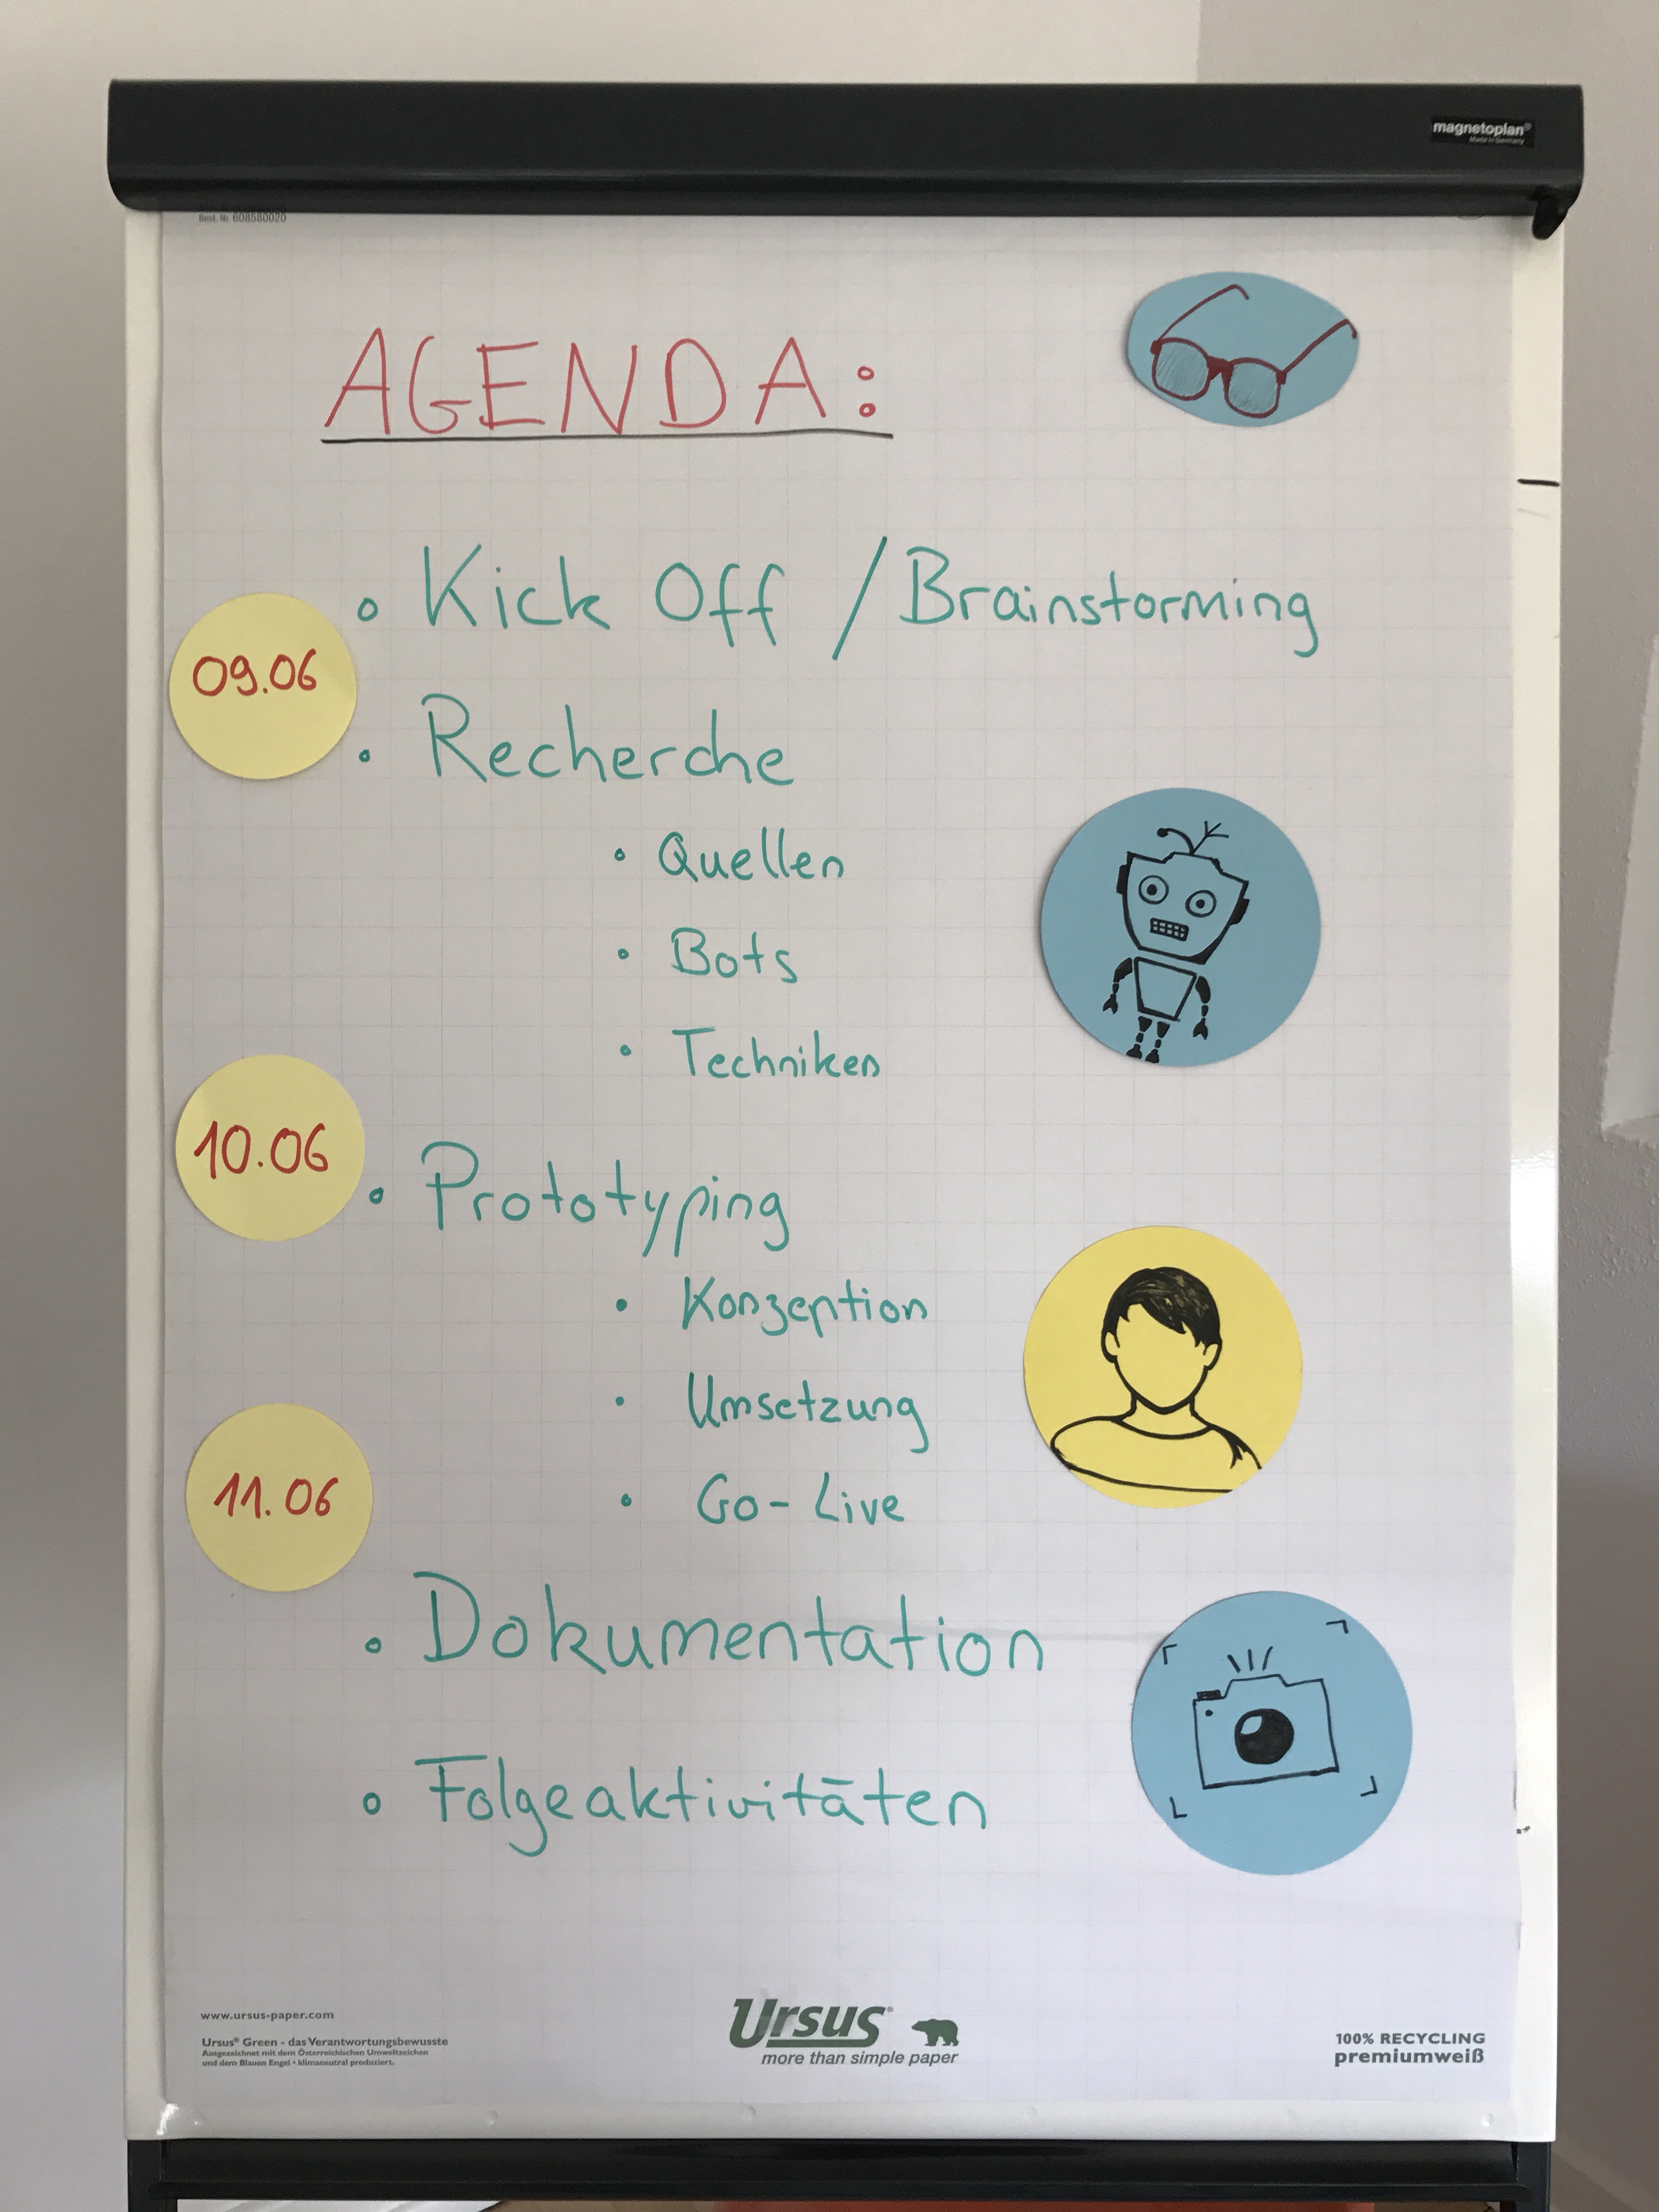 magnetoplan®
Made in Germany
Best. Nr. 608580020
AGENDA:
• Kick Off / Brainstorming
09.06
• Recherche
• Quellen
• Bots
• Techniken
10.06
• Prototyping
• Konzeption
• Umsetzung
11.06
• Go-Live
• Dokumentation
• Folgeaktivitäten
www.ursus-paper.com
Ursus® Green - das Verantwortungsbewusste
Ausgezeichnet mit dem Österreichischen Umweltzeichen
und dem Blauen Engel • klimaneutral produziert.
Ursus®
more than simple paper
100% RECYCLING
premiumweiß